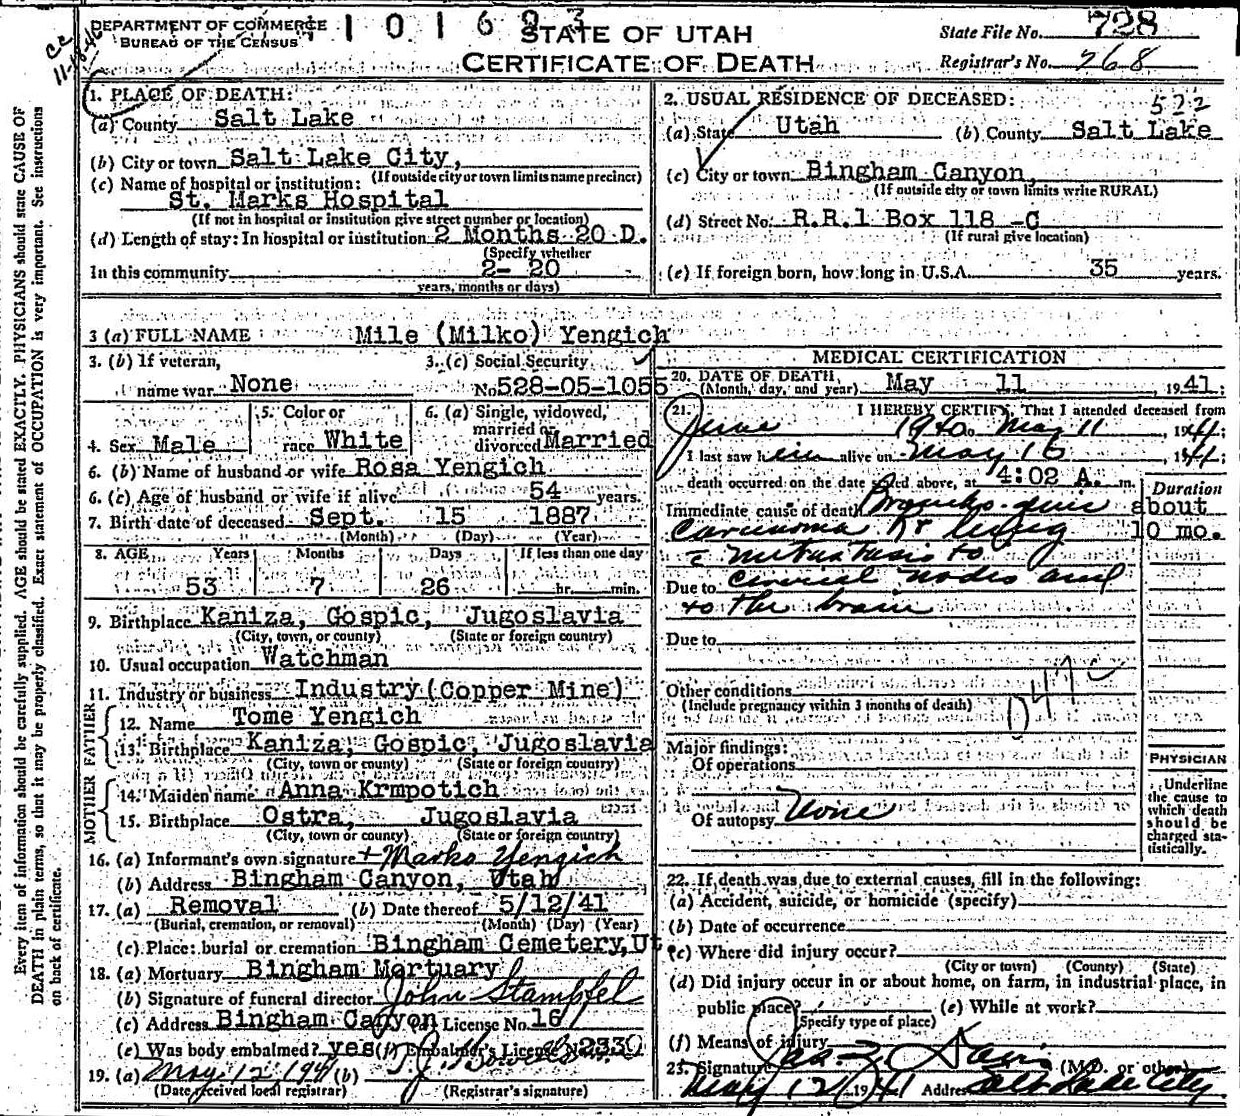 DEPARTMENT OF COMMERCE
BUREAU OF THE CENSUS
101693
STATE OF UTAH
CERTIFICATE OF DEATH
State File No. 728
Registrar's No. 268
1. PLACE OF DEATH:
(a) County Salt Lake
(b) City or town Salt Lake City,
(If outside city or town limits name precinct)
(c) Name of hospital or institution:
St. Marks Hospital
(If not in hospital or institution give street number or location)
(d) Length of stay: In hospital or institution 2 Months 20 D.
(Specify whether
In this community 2- 20
years, months or days)
2. USUAL RESIDENCE OF DECEASED:
(a) State Utah (b) County Salt Lake
(c) City or town Bingham Canyon,
(If outside city or town limits write RURAL)
(d) Street No. R.R.1 Box 118 -C
(If rural give location)
(e) If foreign born, how long in U.S.A. 35 years.
3 (a) FULL NAME Mile (Milko) Yengich
3. (b) If veteran,
name war None
3. (c) Social Security
No. 528-05-1055
4. Sex Male
5. Color or
race White
6. (a) Single, widowed,
married or
divorced Married
6. (b) Name of husband or wife Rosa Yengich
6. (c) Age of husband or wife if alive 54 years.
7. Birth date of deceased Sept. 15 1887
(Month) (Day) (Year)
8. AGE Years Months Days If less than one day
53 7 26 hr. min.
9. Birthplace Kaniza, Gospic, Jugoslavia
(City, town, or county) (State or foreign country)
10. Usual occupation Watchman
11. Industry or business Industry (Copper Mine)
FATHER
12. Name Tome Yengich
13. Birthplace Kaniza, Gospic, Jugoslavia
(City, town or county) (State or foreign country)
MOTHER
14. Maiden name Anna Krmpotich
15. Birthplace Ostra, Jugoslavia
(City, town or county) (State or foreign country)
16. (a) Informant's own signature Marko Yengich
(b) Address Bingham Canyon, Utah
17. (a) Removal (b) Date thereof 5/12/41
(Burial, cremation, or removal) (Month) (Day) (Year)
(c) Place: burial or cremation Bingham Cemetery, Ut.
18. (a) Mortuary Bingham Mortuary
(b) Signature of funeral director John Stampfel
(c) Address Bingham Canyon (d) License No. 16
(e) Was body embalmed? yes (f) Embalmer's License 233
19. (a) May 12 1941 (b)
(Date received local registrar) (Registrar's signature)
MEDICAL CERTIFICATION
20. DATE OF DEATH,
(Month, day, and year) May 11, 1941;
21. I HEREBY CERTIFY, That I attended deceased from
June 1940 to May 11, 1941;
I last saw him alive on May 10, 1941;
death occurred on the date stated above, at 4:02 A. m.
Duration
Immediate cause of death Broncho-genic about
carcinoma Rt lung 10 mo.
c metastasis to
Due to cervical nodes and
to the brain
Due to
Other conditions
(Include pregnancy within 3 months of death)
047c
Major findings:
Of operations
Of autopsy None
PHYSICIAN
Underline
the cause to
which death
should be
charged sta-
tistically.
22. If death was due to external causes, fill in the following:
(a) Accident, suicide, or homicide (specify)
(b) Date of occurrence
(c) Where did injury occur?
(City or town) (County) (State)
(d) Did injury occur in or about home, on farm, in industrial place, in
public place? (e) While at work?
(Specify type of place)
(f) Means of injury
23. Signature Jas Z Davis (M.D. or other)
May 12 1941 Address Salt Lake City
Every item of information should be carefully supplied. AGE should be stated EXACTLY. PHYSICIANS should state CAUSE OF
DEATH in plain terms, so that it may be properly classified. Exact statement of OCCUPATION is very important. See instructions
on back of certificate.